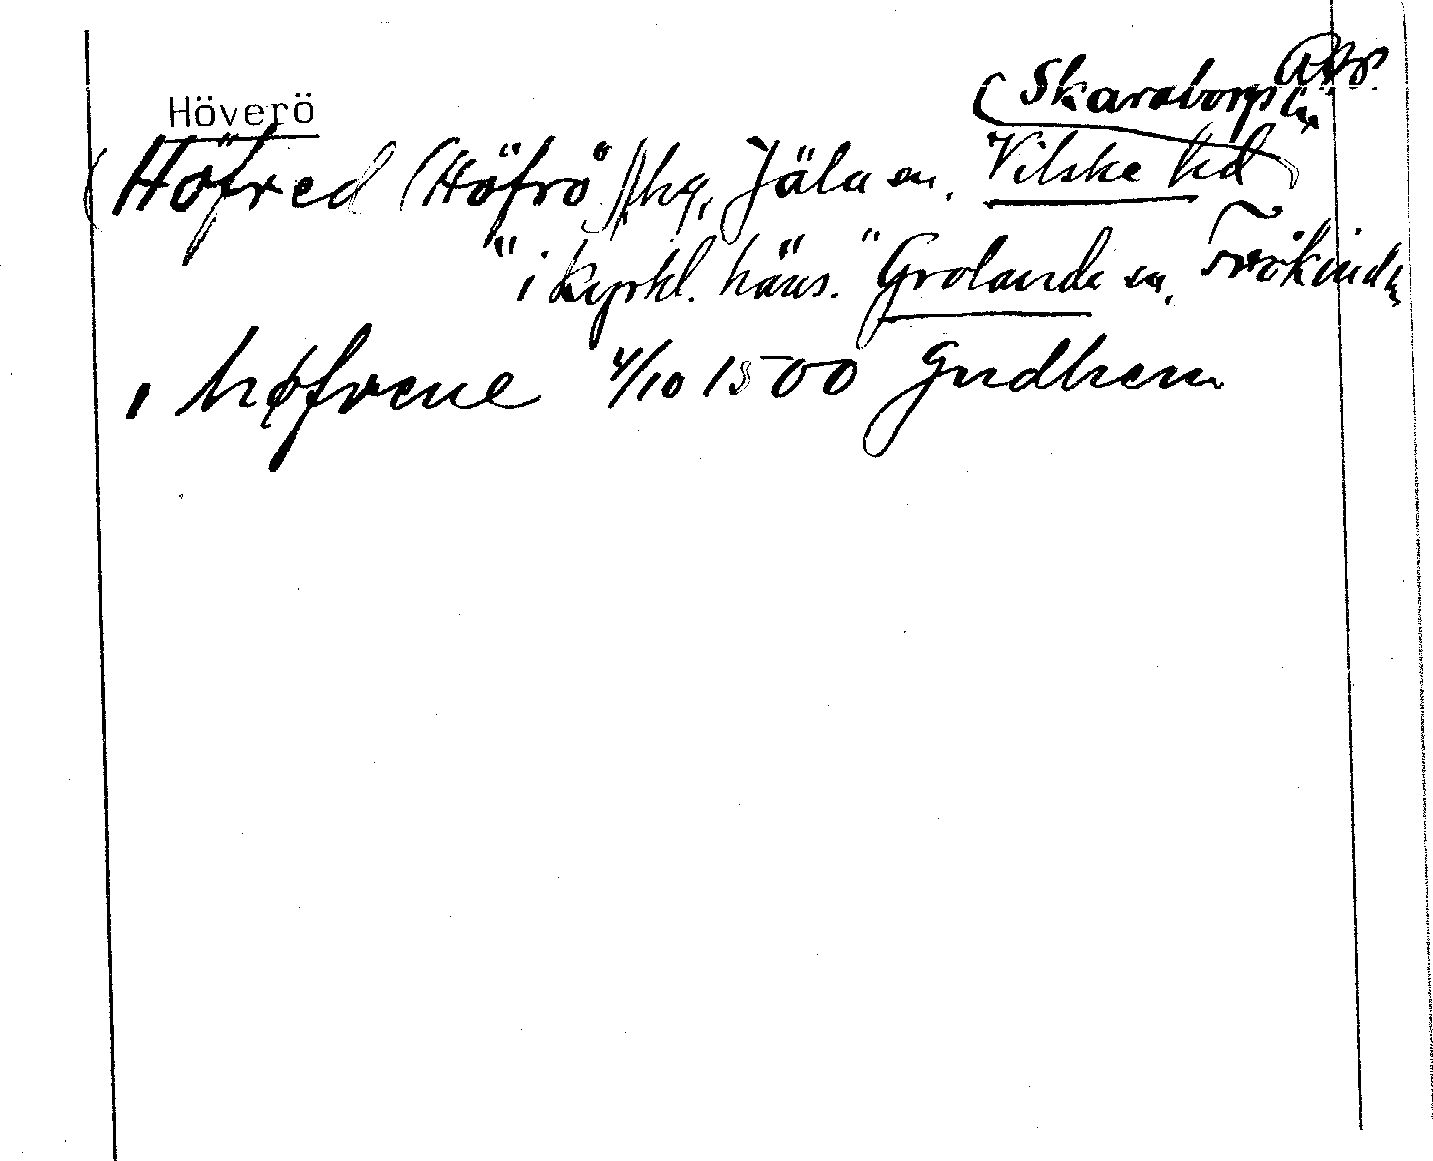 Höverö
(Skaraborgs län
Höfred (Höfrö) Jäla sn. Vilske hd)
" i kyrkl. häns. " Grolanda sn. Frökind
i høfvene 4/10 1500 Gudhem